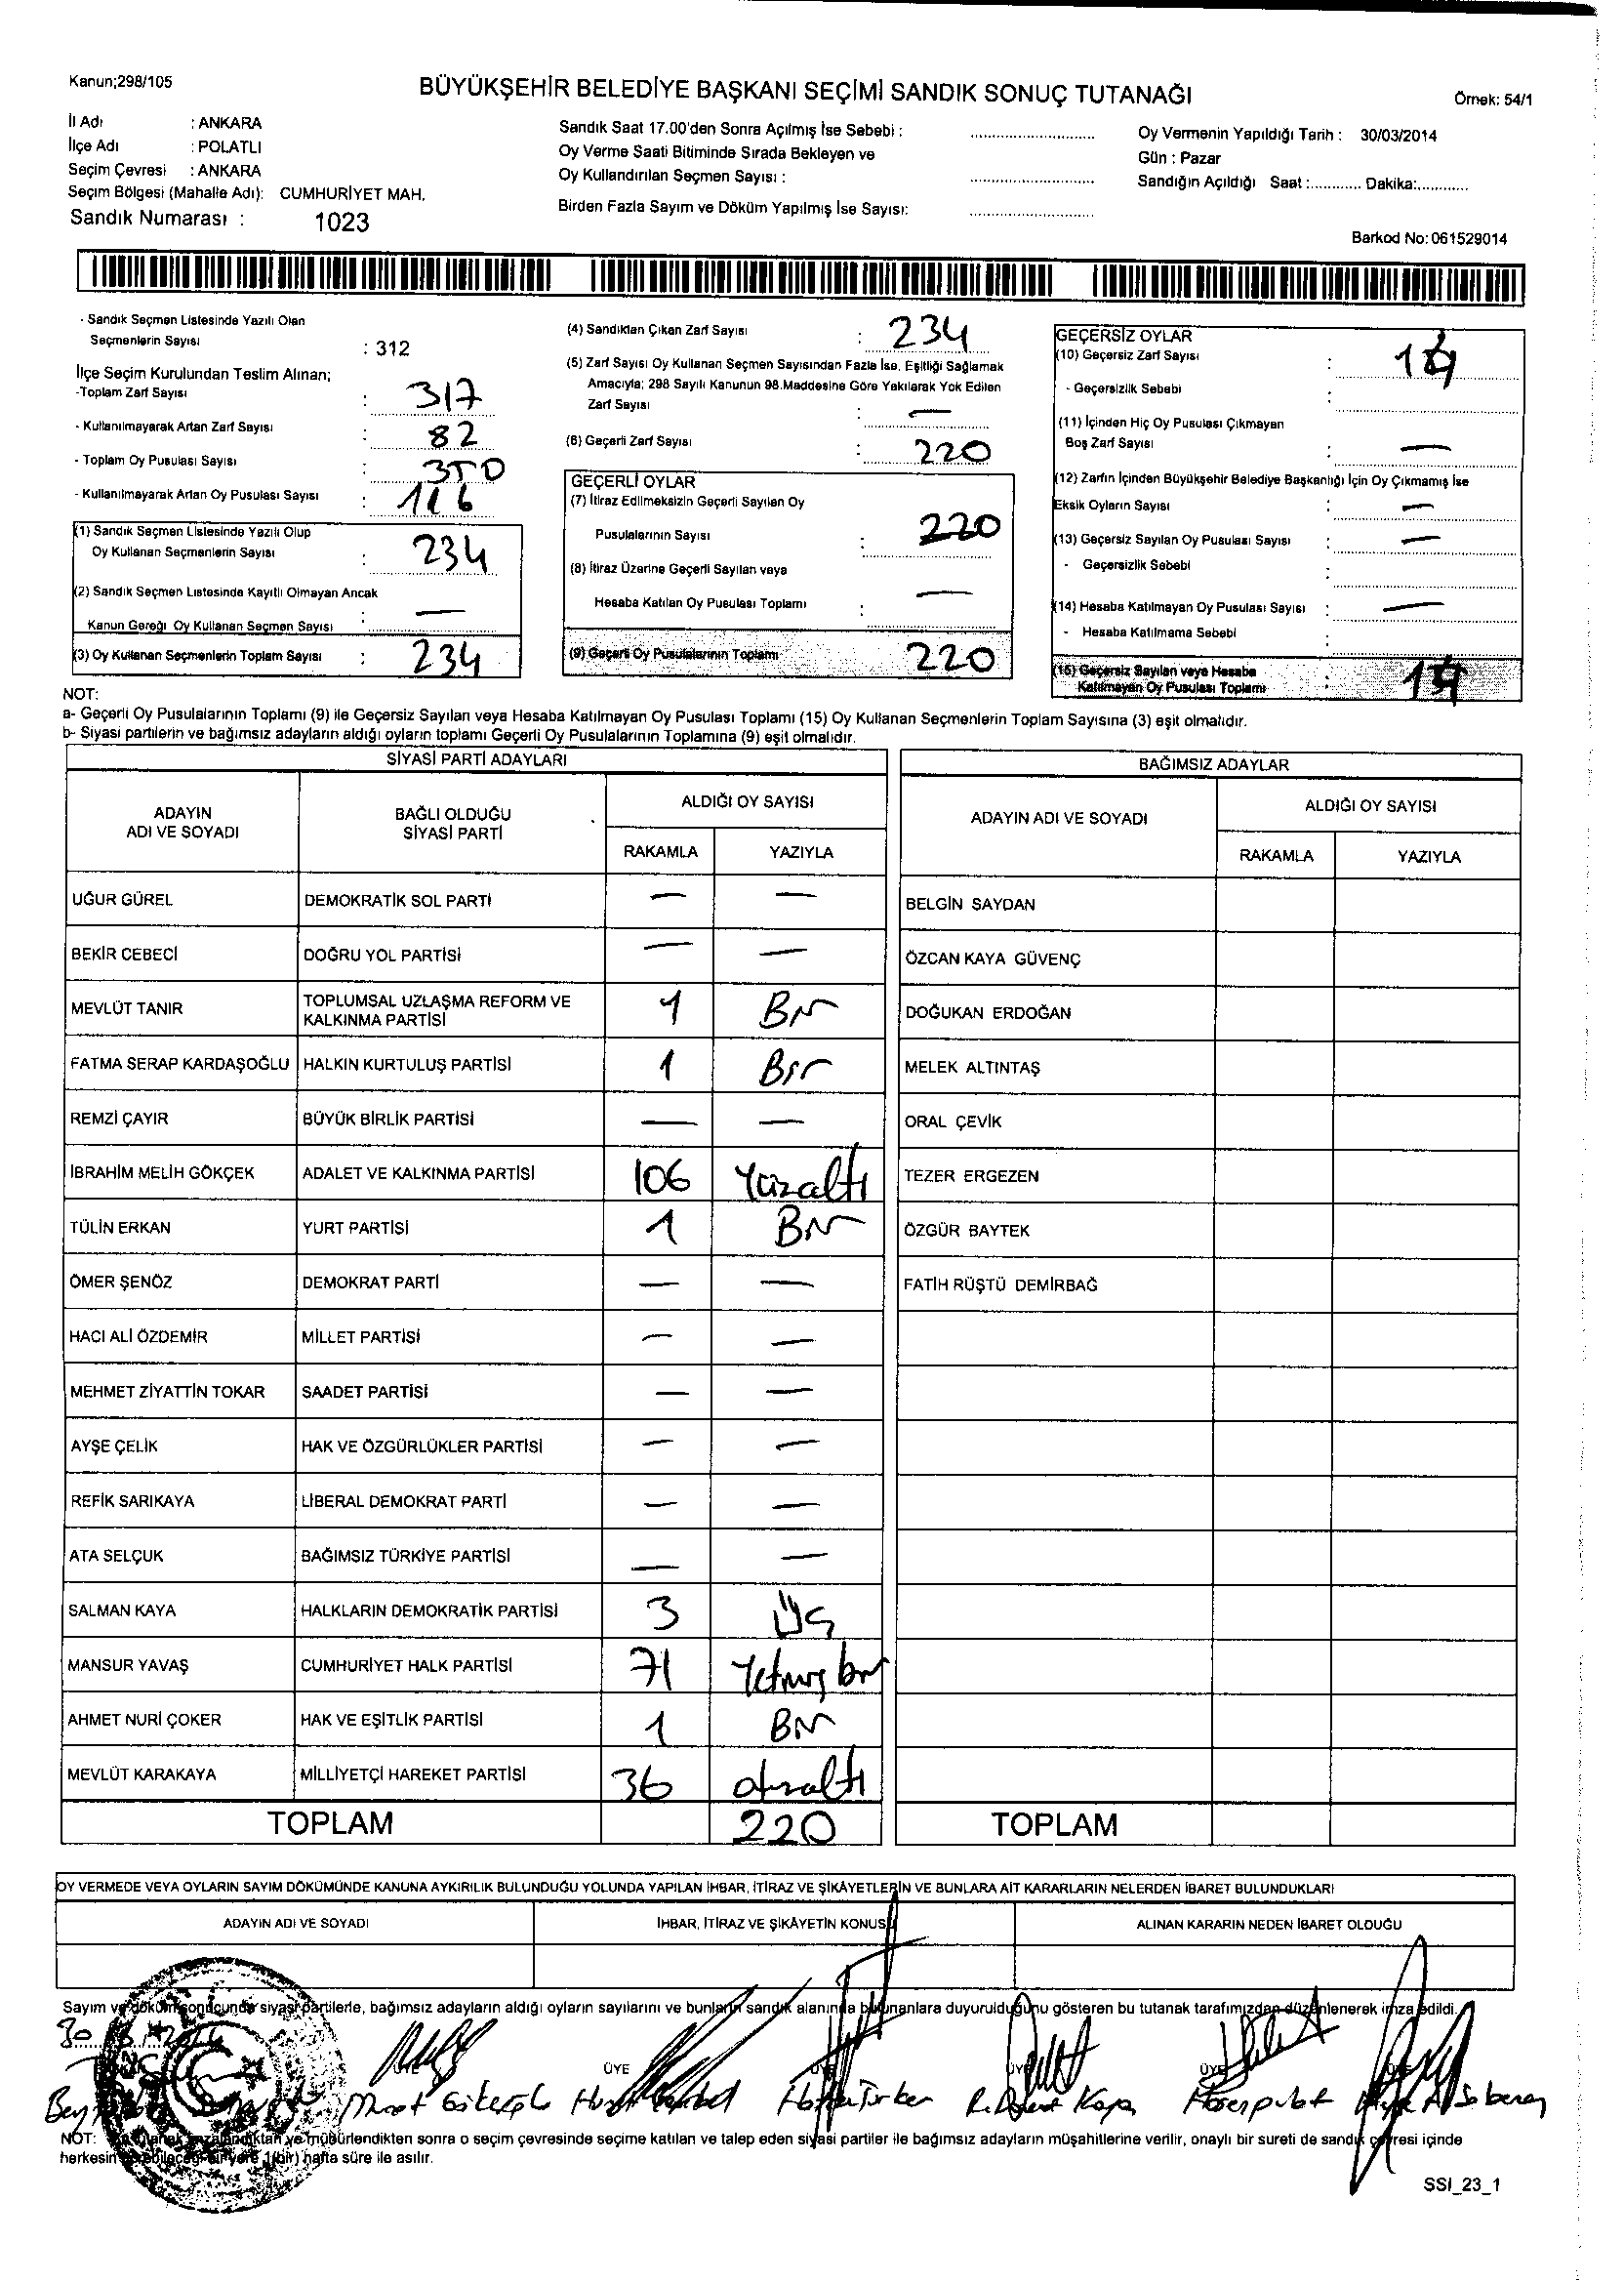 Kanun;298/105
BÜYÜKŞEHİR BELEDİYE BAŞKANI SEÇİMİ SANDIK SONUÇ TUTANAĞI
Örnek: 54/1
İl Adı : ANKARA
İlçe Adı : POLATLI
Seçim Çevresi : ANKARA
Seçim Bölgesi (Mahalle Adı): CUMHURİYET MAH.
Sandık Numarası : 1023
Sandık Saat 17.00'den Sonra Açılmış İse Sebebi :
Oy Verme Saati Bitiminde Sırada Bekleyen ve
Oy Kullandırılan Seçmen Sayısı :
Birden Fazla Sayım ve Döküm Yapılmış İse Sayısı:
Oy Vermenin Yapıldığı Tarih : 30/03/2014
Gün : Pazar
Sandığın Açıldığı Saat :............ Dakika:............
Barkod No: 061529014
- Sandık Seçmen Listesinde Yazılı Olan
Seçmenlerin Sayısı : 312
İlçe Seçim Kurulundan Teslim Alınan;
-Toplam Zarf Sayısı : 317
- Kullanılmayarak Artan Zarf Sayısı : 82
- Toplam Oy Pusulası Sayısı : 350
- Kullanılmayarak Artan Oy Pusulası Sayısı : 116
(1) Sandık Seçmen Listesinde Yazılı Olup
Oy Kullanan Seçmenlerin Sayısı : 234
(2) Sandık Seçmen Listesinde Kayıtlı Olmayan Ancak
Kanun Gereği Oy Kullanan Seçmen Sayısı : —
(3) Oy Kullanan Seçmenlerin Toplam Sayısı : 234
(4) Sandıktan Çıkan Zarf Sayısı : 234
(5) Zarf Sayısı Oy Kullanan Seçmen Sayısından Fazla İse, Eşitliği Sağlamak
Amacıyla; 298 Sayılı Kanunun 98.Maddesine Göre Yakılarak Yok Edilen
Zarf Sayısı : —
(6) Geçerli Zarf Sayısı : 220
GEÇERLİ OYLAR
(7) İtiraz Edilmeksizin Geçerli Sayılan Oy
Pusulalarının Sayısı : 220
(8) İtiraz Üzerine Geçerli Sayılan veya
Hesaba Katılan Oy Pusulası Toplamı : —
(9) Geçerli Oy Pusulalarının Toplamı 220
GEÇERSİZ OYLAR
(10) Geçersiz Zarf Sayısı : 14
- Geçersizlik Sebebi :
(11) İçinden Hiç Oy Pusulası Çıkmayan
Boş Zarf Sayısı : —
(12) Zarfın İçinden Büyükşehir Belediye Başkanlığı İçin Oy Çıkmamış İse
Eksik Oyların Sayısı : —
(13) Geçersiz Sayılan Oy Pusulası Sayısı : —
- Geçersizlik Sebebi :
(14) Hesaba Katılmayan Oy Pusulası Sayısı : —
- Hesaba Katılmama Sebebi :
(15) Geçersiz Sayılan veya Hesaba
Katılmayan Oy Pusulası Toplamı : 14
NOT:
a- Geçerli Oy Pusulalarının Toplamı (9) ile Geçersiz Sayılan veya Hesaba Katılmayan Oy Pusulası Toplamı (15) Oy Kullanan Seçmenlerin Toplam Sayısına (3) eşit olmalıdır.
b- Siyasi partilerin ve bağımsız adayların aldığı oyların toplamı Geçerli Oy Pusulalarının Toplamına (9) eşit olmalıdır.
SİYASİ PARTİ ADAYLARI
ADAYIN ADI VE SOYADI BAĞLI OLDUĞU SİYASİ PARTİ ALDIĞI OY SAYISI
RAKAMLA YAZIYLA
UĞUR GÜREL DEMOKRATİK SOL PARTİ — —
BEKİR CEBECİ DOĞRU YOL PARTİSİ — —
MEVLÜT TANIR TOPLUMSAL UZLAŞMA REFORM VE KALKINMA PARTİSİ 1 Bir
FATMA SERAP KARDAŞOĞLU HALKIN KURTULUŞ PARTİSİ 1 Bir
REMZİ ÇAYIR BÜYÜK BİRLİK PARTİSİ — —
İBRAHİM MELİH GÖKÇEK ADALET VE KALKINMA PARTİSİ 106 Yüzaltı
TÜLİN ERKAN YURT PARTİSİ 1 Bir
ÖMER ŞENÖZ DEMOKRAT PARTİ — —
HACI ALİ ÖZDEMİR MİLLET PARTİSİ — —
MEHMET ZİYATTİN TOKAR SAADET PARTİSİ — —
AYŞE ÇELİK HAK VE ÖZGÜRLÜKLER PARTİSİ — —
REFİK SARIKAYA LİBERAL DEMOKRAT PARTİ — —
ATA SELÇUK BAĞIMSIZ TÜRKİYE PARTİSİ — —
SALMAN KAYA HALKLARIN DEMOKRATİK PARTİSİ 3 Üç
MANSUR YAVAŞ CUMHURİYET HALK PARTİSİ 71 Yetmiş bir
AHMET NURİ ÇOKER HAK VE EŞİTLİK PARTİSİ 1 Bir
MEVLÜT KARAKAYA MİLLİYETÇİ HAREKET PARTİSİ 36 otuzaltı
TOPLAM 220
BAĞIMSIZ ADAYLAR
ADAYIN ADI VE SOYADI ALDIĞI OY SAYISI
RAKAMLA YAZIYLA
BELGİN SAYDAN
ÖZCAN KAYA GÜVENÇ
DOĞUKAN ERDOĞAN
MELEK ALTINTAŞ
ORAL ÇEVİK
TEZER ERGEZEN
ÖZGÜR BAYTEK
FATİH RÜŞTÜ DEMİRBAĞ
TOPLAM
OY VERMEDE VEYA OYLARIN SAYIM DÖKÜMÜNDE KANUNA AYKIRILIK BULUNDUĞU YOLUNDA YAPILAN İHBAR, İTİRAZ VE ŞİKÂYETLERİN VE BUNLARA AİT KARARLARIN NELERDEN İBARET BULUNDUKLARI
ADAYIN ADI VE SOYADI İHBAR, İTİRAZ VE ŞİKÂYETİN KONUSU ALINAN KARARIN NEDEN İBARET OLDUĞU
Sayım ve döküm sonucunda siyasi partilerle, bağımsız adayların aldığı oyların sayılarını ve bunların sandık alanında bulunanlara duyurulduğunu gösteren bu tutanak tarafımızdan düzenlenerek imza edildi.
ÜYE ÜYE ÜYE ÜYE ÜYE
Murat
NOT: mühürlendikten sonra o seçim çevresinde seçime katılan ve talep eden siyasi partiler ile bağımsız adayların müşahitlerine verilir, onaylı bir sureti de sandık çevresi içinde
herkesin 1(bir) hafta süre ile asılır.
SSI_23_1